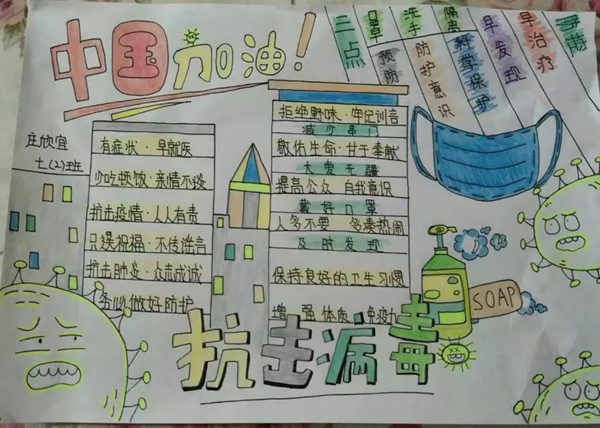 中国加油!
三点
口罩
预防
洗手
防护意识
隔离
科学保护
早发现
早治疗
庄欣宜
七(2)班
有症状·早就医
少吃顿饭·亲情不淡
抗击疫情·人人有责
只送祝福·不传谣言
抗击肺炎·众志成诚
务必做好防护
拒绝野味·牢记训言
减少串门
敬佑生命·甘于奉献
大爱无疆
提高公众 自我意识
戴好口罩
人多不要 多凑热闹
及时发现
保持良好的卫生习惯
增强体质 免疫
SOAP
抗击病毒